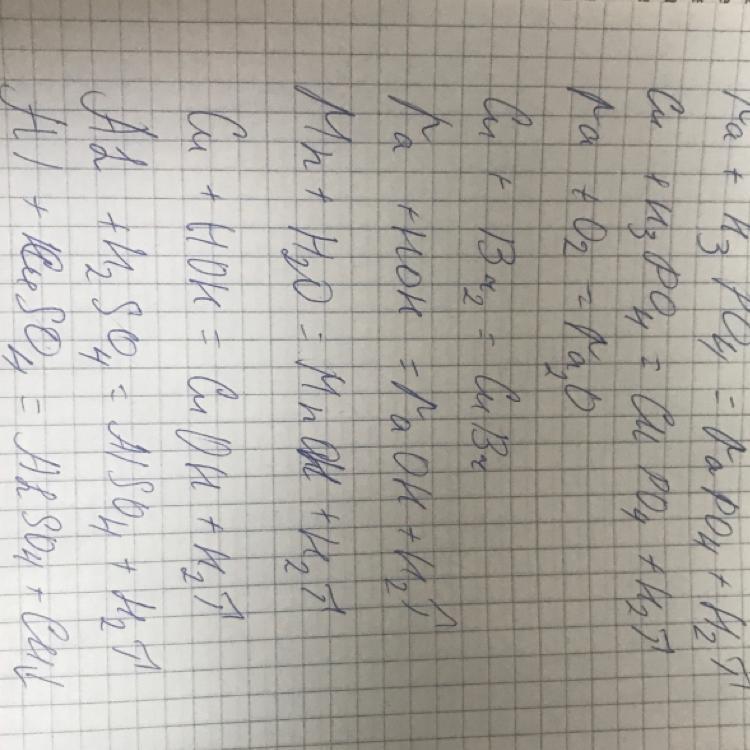 Na + H₃PO₄ = NaPO₄ + H₂↑
Cu + H₃PO₄ = CuPO₄ + H₂↑
Na + O₂ = Na₂O
Cu + Br₂ = CuBr
Na + HOH = NaOH + H₂↑
Mn + H₂O = MnOH + H₂↑
Cu + HOH = CuOH + H₂↑
Al + H₂SO₄ = AlSO₄ + H₂↑
Al + CuSO₄ = AlSO₄ + Cu↓